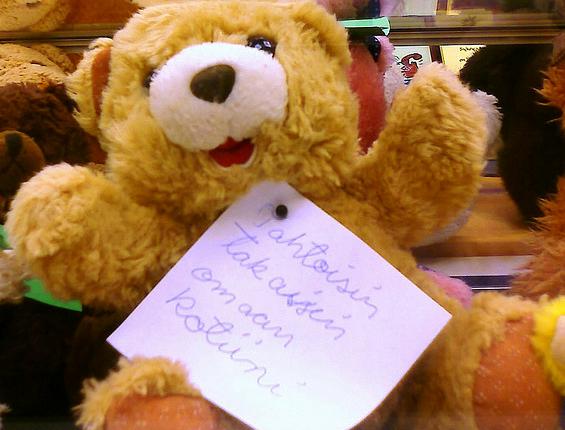 Tahtoisin
takaisin
omaan
kotiini